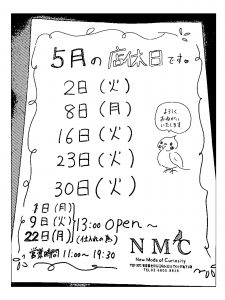 5月の店休日です。
2日(火)
8日(月)
16日(火)
23日(火)
30日(火)
よろしく
おねがい
いたします
1日(月)
9日(火)
22日(月)
13:00 open〜
(仕入れの為)
営業時間 11:00〜19:30
NMC
New Mode of Curiosity